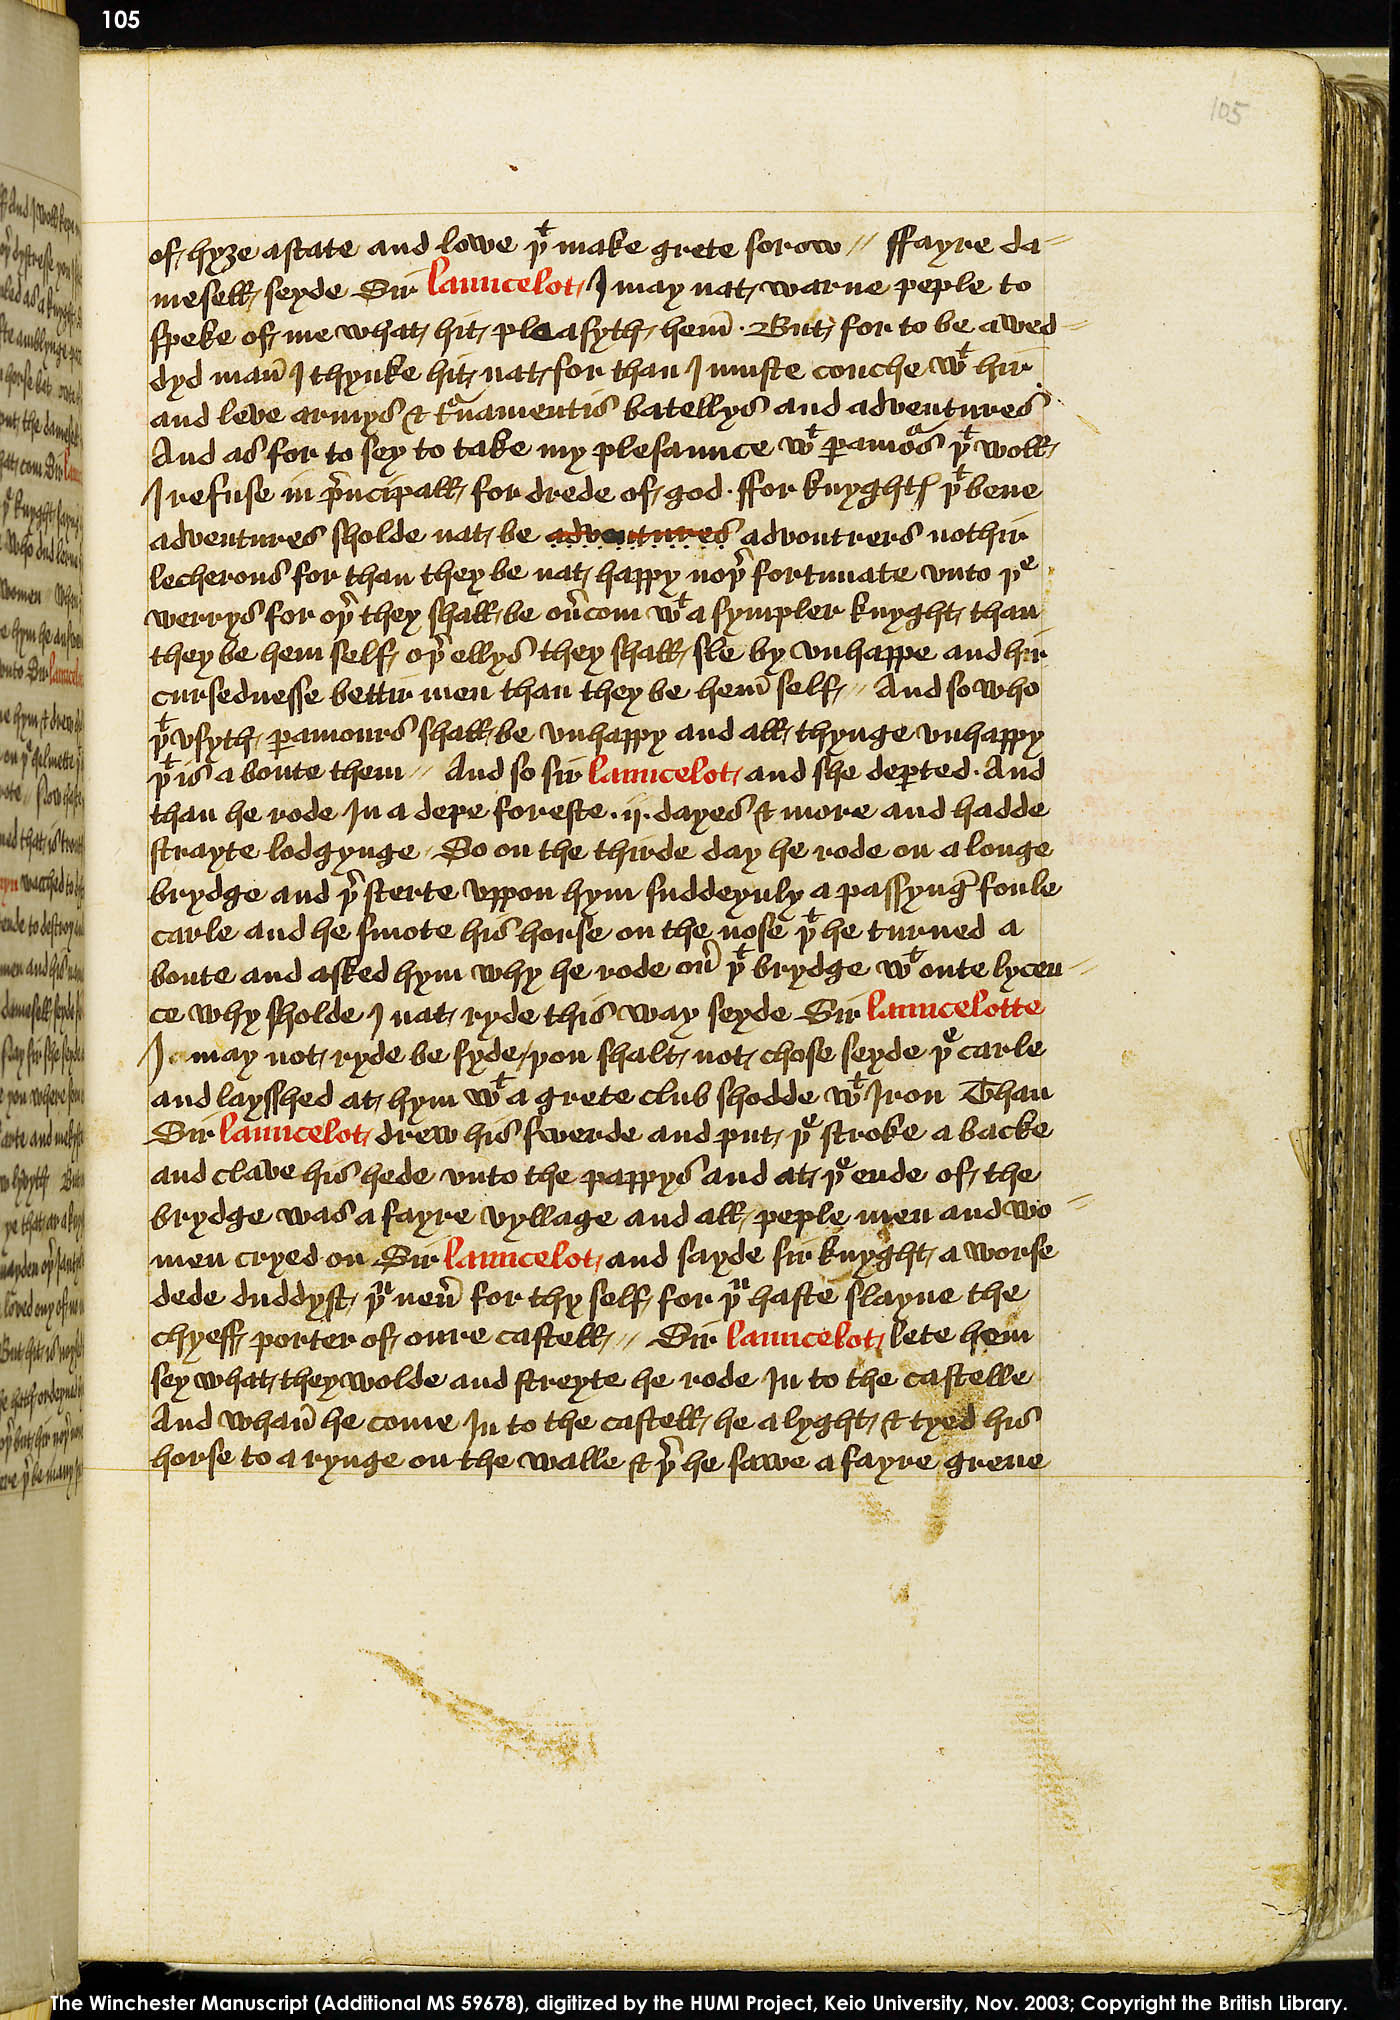 105
105
of hyȝe astate and lowe þᵗ make grete sorow // ffayre da-
mesell seyde Sir Launcelot I may nat warne peple to
speke of me what hit pleasyth hem̄ · But for to be a wed-
dyd man̄ I thynke hit nat for than I muste couche wᵗ hir
and leve armys & tᵘnamentis batellys and adventures
And as for to sey to take my plesaunce wᵗ ꝑamoᵘs þᵗ woll
I refuse in pͥncipall for drede of god · ffor knyghtꝭ þᵗ bene
adventures sholde nat be adventures advoutrers nothir
lecherous for than they be nat happy noþ̄ fortunate vnto þᵉ
werrys for oþ̄ they shall be ou̅com wᵗ a sympler knyght than
they be hem self oþ̄ ellys they shall sle by vnhappe and hir
cursednesse bettir men than they be hem̄ self // And so who
þᵗ vsyth ꝑamours shall be vnhappy and all thynge vnhappy
þᵗ is a boute them // And so sir Launcelot and she deꝑted · And
than he rode In a depe foreste · ij · dayes & more and hadde
strayte lodgynge // So on the thirde day he rode on a longe
brydge and þ̄ sterte vppon hym suddeynly a passynḡ foule
carle and he smote his horse on the nose þᵗ he turned a
boute and asked hym why he rode ou̅ þᵗ brydge wᵗ oute lycen-
ce why sholde I nat ryde this way seyde Sir Launcelotte
I may not ryde be syde / þou shalt not chose seyde þᵉ carle
and laysshed at hym wᵗ a grete club shodde wᵗ Iron Than
Sir Launcelot drew his swerde and put þᵉ stroke a backe
and clave his hede vnto the pappys and at þᵉ ende of the
brydge was a fayre vyllage and all peple men and wo-
men cryed on Sir Launcelot and sayde sir knyght a worse
dede duddyst þᵘ neu̅ for thy self for þᵘ haste slayne the
chyeff porter of oure castell // Sir Launcelot lete hem
sey what they wolde and streyte he rode In to the castelle
And whan̄ he come In to the castell he alyght & tyed his
horse to a rynge on the walle & þ̄ he sawe a fayre grene
The Winchester Manuscript (Additional MS 59678), digitized by the HUMI Project, Keio University, Nov. 2003; Copyright the British Library.